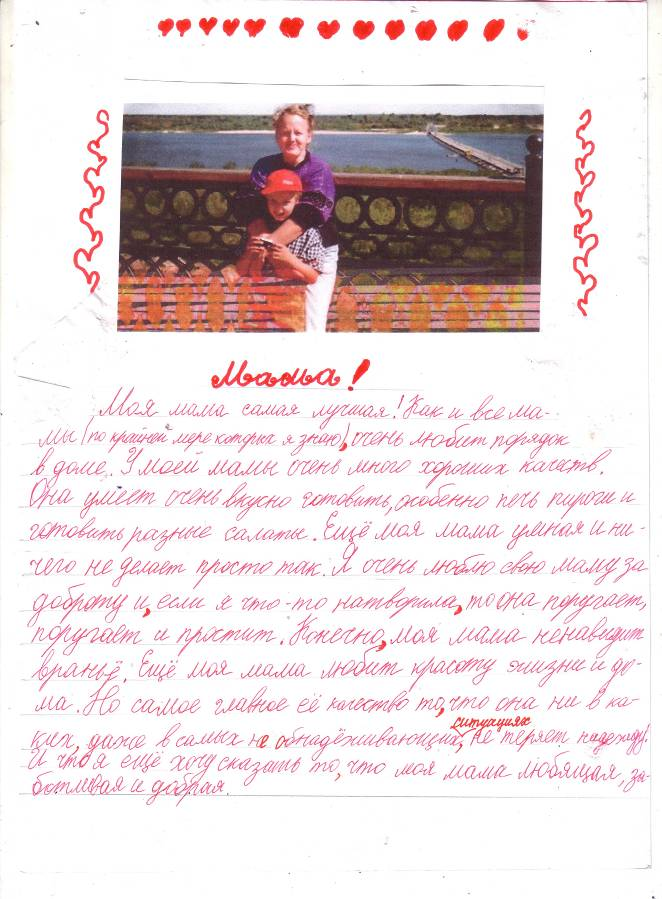 Мама!
Моя мама самая лучшая! Как и все ма-
мы (по крайней мере которых я знаю), очень любит порядок
в доме. У моей мамы очень много хороших качеств.
Она умеет очень вкусно готовить, особенно печь пироги и
готовить разные салаты. Ещё моя мама умная и ни-
чего не делает просто так. Я очень люблю свою маму за
доброту и, если я что-то натворила, то она поругает,
поругает и простит. Конечно, моя мама ненавидит
враньё. Ещё моя мама любит красоту жизни и до-
ма. Но самое главное её качество то, что она ни в ка-
ситуациях
ких, даже в самых не обнадёживающих, не теряет надежду!
И что я ещё хочу сказать то, что моя мама любящая, за-
ботливая и добрая.